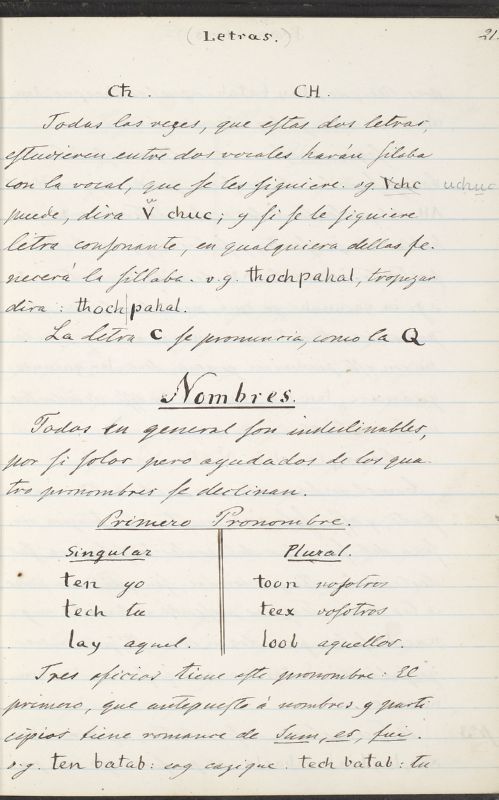 (Letras.) 21.
Cħ. CH.
Todas las vezes, que eſtas dos letras,
eſtuvieren entre dos vocales harán ſilaba
con la vocal, que ſe les ſiguiere. vg Vchc uchuc
puede, dira V chuc; y ſi ſe le ſiguiere
letra conſonante, en qualquiera dellas fe-
necerá la ſillaba. v.g. thochpahal, tropezar
dira: thoch|pahal.
La letra C ſe pronuncia, como la Q
Nombres.
Todos en general ſon indeclinables,
por ſi ſolos pero ayudados de los qua-
tro pronombres ſe declinan.
Primero Pronombre.
Singular Plural.
ten yo toon noſotros
tech tu teex voſotros
lay aquel. loob aquellos.
Tres oficios tiene eſte pronombre: El
primero, que antepueſto á nombres y parti
cipios tiene romance de Sum, es, fui.
v.g. ten batab: soy cazique. tech batab: tu